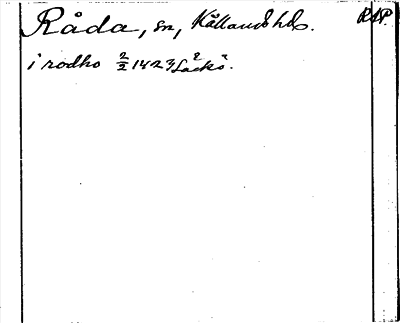 Råda, sn, Kållands hd. RAP.
i rodho 2/2 1423 Läckö.